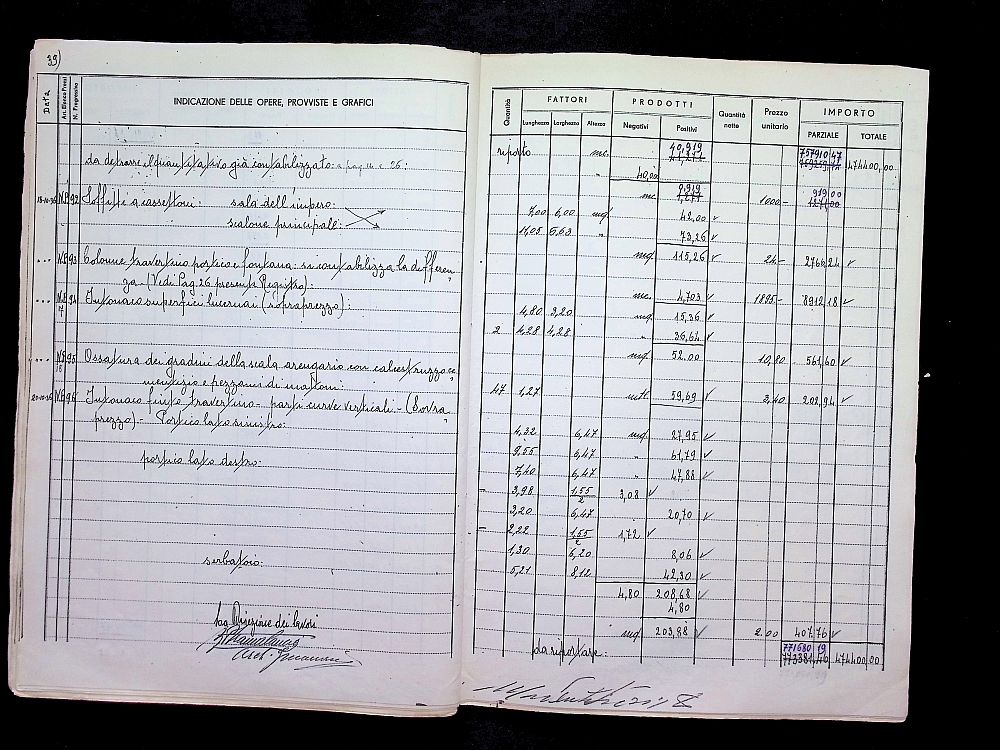 39)
Data
Art. Elenco Prezzi
N. Progressivo
INDICAZIONE DELLE OPERE, PROVVISTE E GRAFICI
da detrarre il quantitativo già contabilizzato: a pag. 26:
N.P. 92 Soffitti a cassettoni: sala dell'impero:
scalone principale:
... N.P. 93 Colonne travertino portico e fontana: si contabilizza la differen
za. (Vedi Pag. 26 presente Registro):
... 94 Intonaco superfici lucernai (sopraprezzo):
... 95 Ossatura dei gradini della scala arengario con calcestruzzo ce
mentizio e pezzami di mattoni:
96 Intonaco finto travertino - parti curve verticali - (Sovra
prezzo) - Portico lato sinistro:
portico lato destro:
serbatoio:
La Direzione dei lavori
Quantità
FATTORI
Lunghezza Larghezza Altezza
PRODOTTI
Negativi Positivi
Quantità nette
Prezzo unitario
IMPORTO
PARZIALE TOTALE
riporto mc. 40,919 757910 47 474400,00
40,00
mc. 0,919 1000- 919 00
7,00 6,00 mq. 42,00
11,05 6,63 " 73,26
mq. 115,26 24- 2766,24
mc. 4,703 1895- 8912 18
4,80 3,20 mq. 15,36
2 4,28 4,28 " 36,64
mq. 52.00 10,80 561,60
47 1,27 mtl. 59,69 3,40 202,94
4,32 6,47 mq. 27,95
9,55 6,47 " 61,79
7,40 6,47 " 47,88
- 3,98 1,55/2 3,08
3,20 6,47 20,70
- 2,22 1,55/2 1,72
1,30 6,20 8,06
5,21 8,12 42,30
4,80 208,68
4,80
mq. 203,88 2.00 407,76
da riportare: 771680 19 474400,00